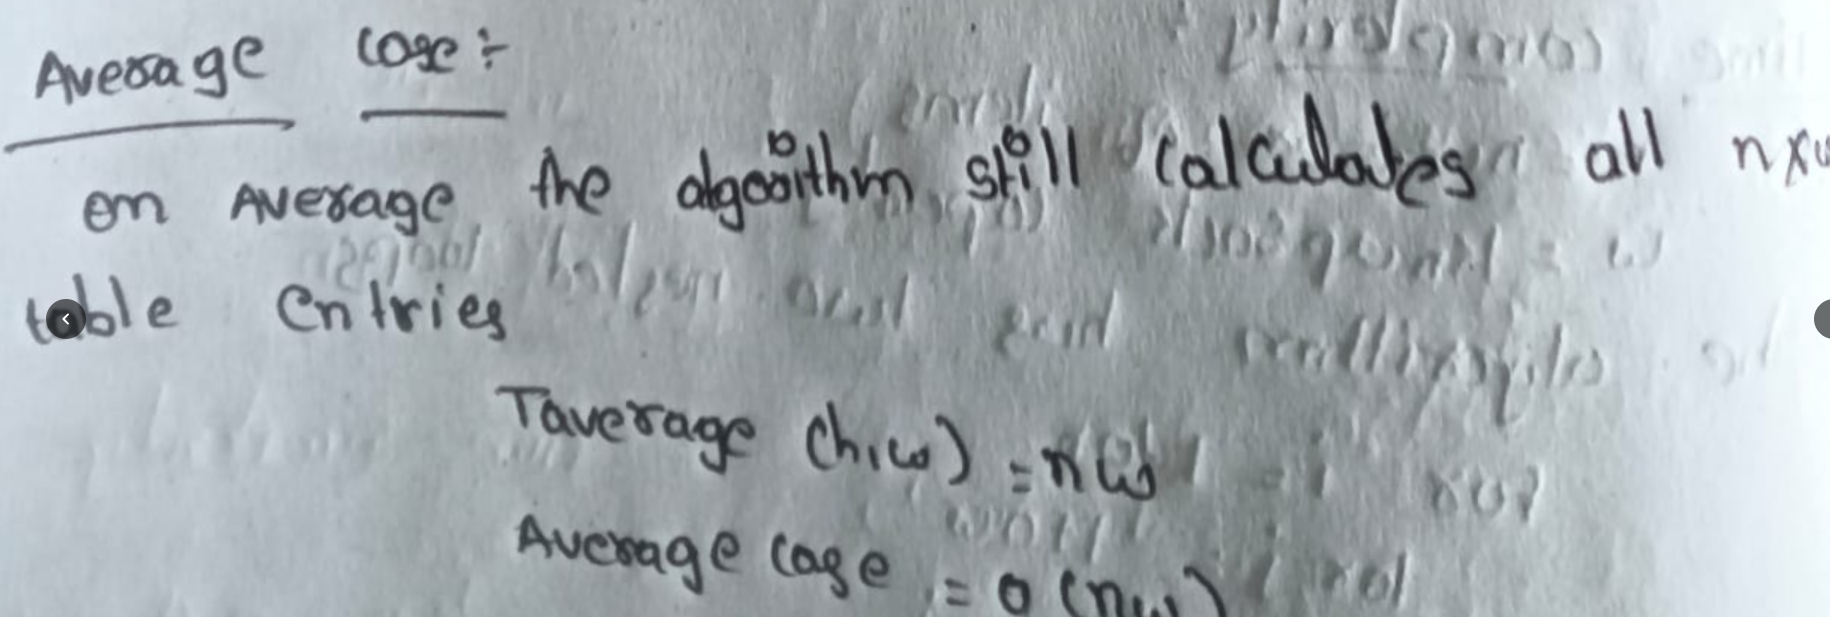 Average case :-
on Average the algorithm still calculates all nxw
table Entries
Taverage (n,w) = nw
Average case = O(nw)